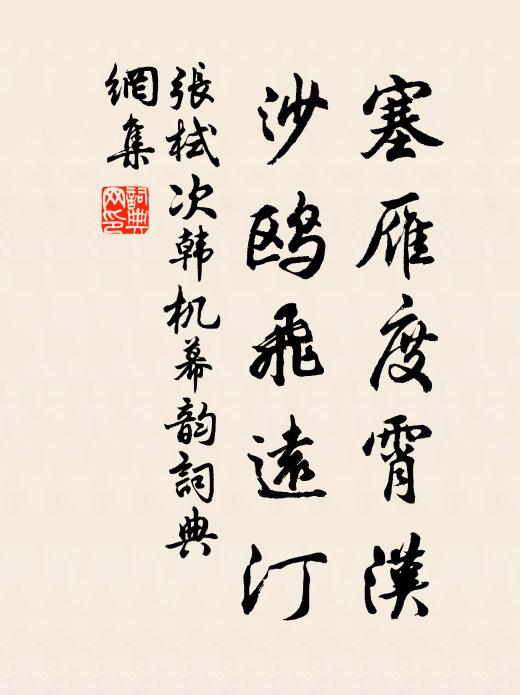 塞雁度霄漢
沙鸥飛遠汀
張栻次韩机幕韵詞典
網集
詞典
网印